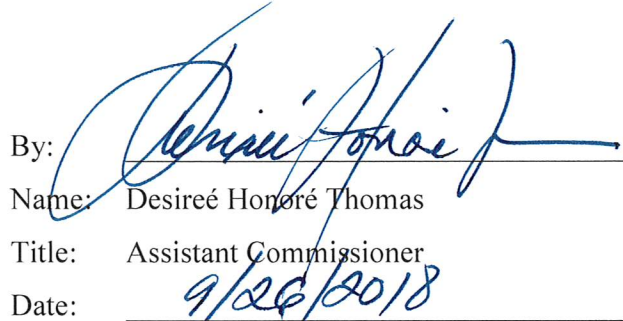 By: Desireé Honoré J
Name: Desireé Honoré Thomas
Title: Assistant Commissioner
Date: 9/26/2018